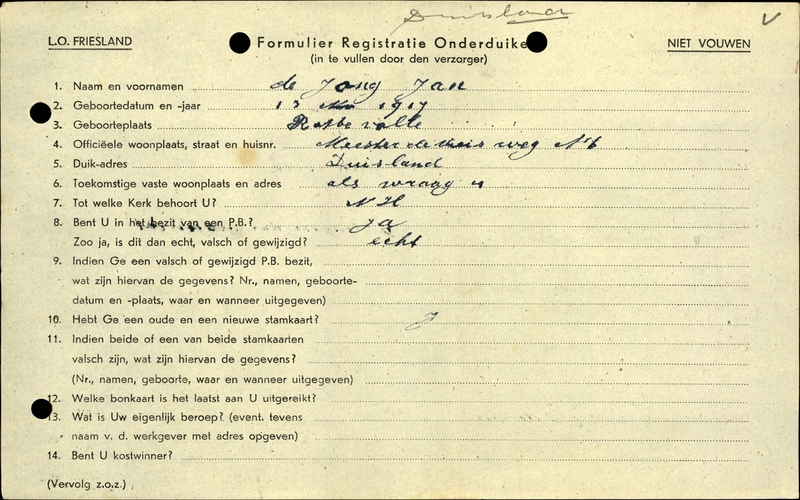 Duisland
L.O. FRIESLAND
Formulier Registratie Onderduike
NIET VOUWEN
(in te vullen door den verzorger)
1. Naam en voornamen de Jong Jan
2. Geboortedatum en -jaar 13 1917
3. Geboorteplaats
4. Officiëele woonplaats, straat en huisnr. Meester weg
5. Duik-adres Duisland
6. Toekomstige vaste woonplaats en adres als vraag 4
7. Tot welke Kerk behoort U? N H
8. Bent U in het bezit van een P.B.? ja
Zoo ja, is dit dan echt, valsch of gewijzigd? echt
9. Indien Ge een valsch of gewijzigd P.B. bezit,
wat zijn hiervan de gegevens? Nr., namen, geboorte-
datum en -plaats, waar en wanneer uitgegeven)
10. Hebt Ge een oude en een nieuwe stamkaart? J
11. Indien beide of een van beide stamkaarten
valsch zijn, wat zijn hiervan de gegevens?
(Nr., namen, geboorte, waar en wanneer uitgegeven)
12. Welke bonkaart is het laatst aan U uitgereikt?
13. Wat is Uw eigenlijk beroep? (event. tevens
naam v. d. werkgever met adres opgeven)
14. Bent U kostwinner?
(Vervolg z.o.z.)